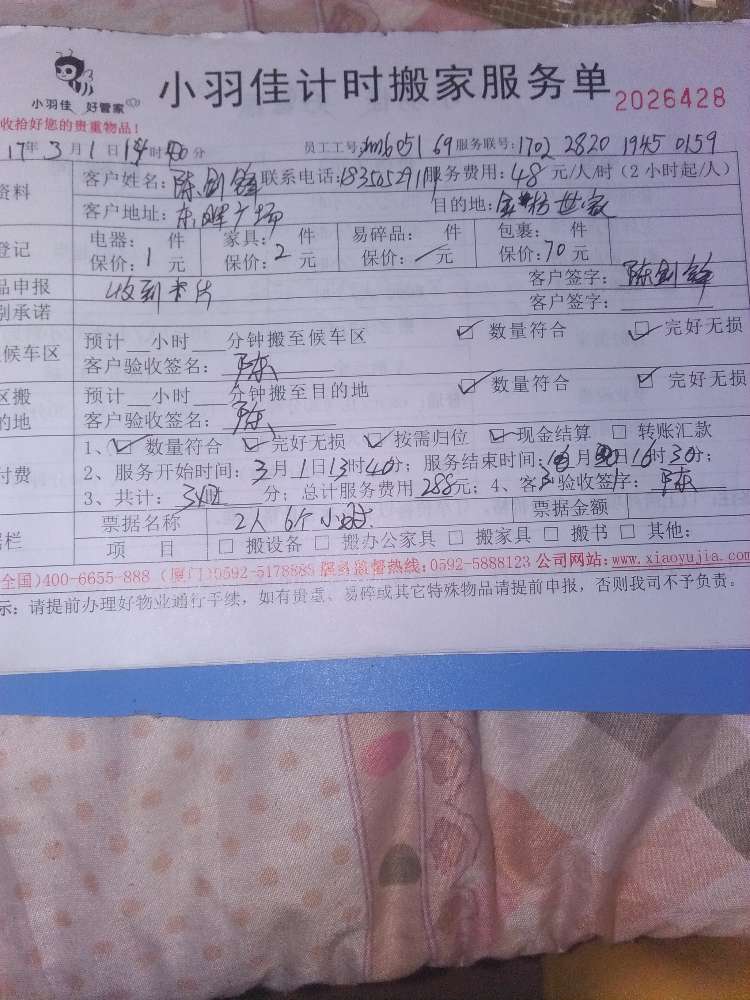 小羽佳 好管家
小羽佳计时搬家服务单 2026428
收拾好您的贵重物品!
17年3月1日 时 分 员工工号: 服务联号:1702 2820 1945 0159
资料 客户姓名:陈剑锋 联系电话: 服务费用:48元/人/时(2小时起/人)
客户地址:东 广场 目的地:金 世家
登记 电器: 件 家具: 件 易碎品: 件 包裹: 件
保价:1元 保价:2元 保价:/元 保价:70元
品申报 收到卡片 客户签字:陈剑锋
别承诺 客户签字:
候车区 预计__小时__分钟搬至候车区 ☑ 数量符合 ☑ 完好无损
客户验收签名:陈
区搬 预计__小时__分钟搬至目的地 ☑ 数量符合 ☑ 完好无损
的地 客户验收签名:陈
1、☑ 数量符合 ☑ 完好无损 ☑ 按需归位 ☑ 现金结算 □ 转账汇款
付费 2、服务开始时间:3月1日13时40分;服务结束时间: 月 日16时30分;
3、共计: 分;总计服务费用288元;4、客户验收签字:陈
据栏 票据名称 2人 6个小时 票据金额
项 目 □ 搬设备 □ 搬办公家具 □ 搬家具 □ 搬书 □ 其他:
全国)400-6655-888 (厦门)0592-5178885 服务监督热线:0592-5888123 公司网站:www.xiaoyujia.com
示:请提前办理好物业通行手续,如有贵重、易碎或其它特殊物品请提前申报,否则我司不予负责。